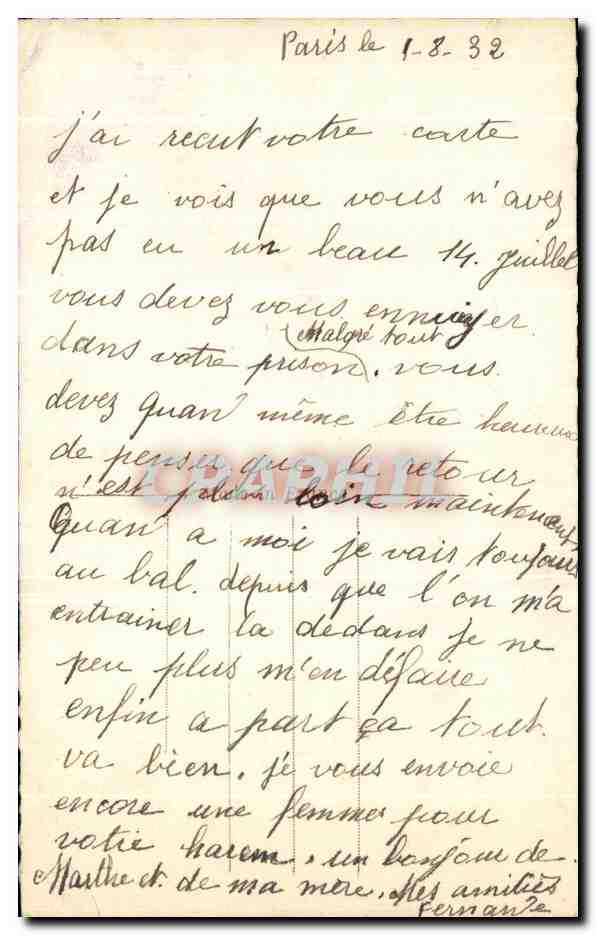 Paris le 1-8-32
j'ai recut votre carte
et je vois que vous n'avez
pas eu un beau 14. Juillet
vous devez vous ennuyer
Malgré tout
dans votre prison. vous
devez quan même être heureux
de penser que le retour
n'est plus loin maintenant
Quan a moi je vais toujours
au bal. depuis que l'on m'a
entrainer la dedans je ne
peu plus m'en défaire
enfin a part ça tout
va bien. je vous envoie
encore une femme pour
votre harem. un bonjour de
Marthe et de ma mère. Mes amitiés
Fernande